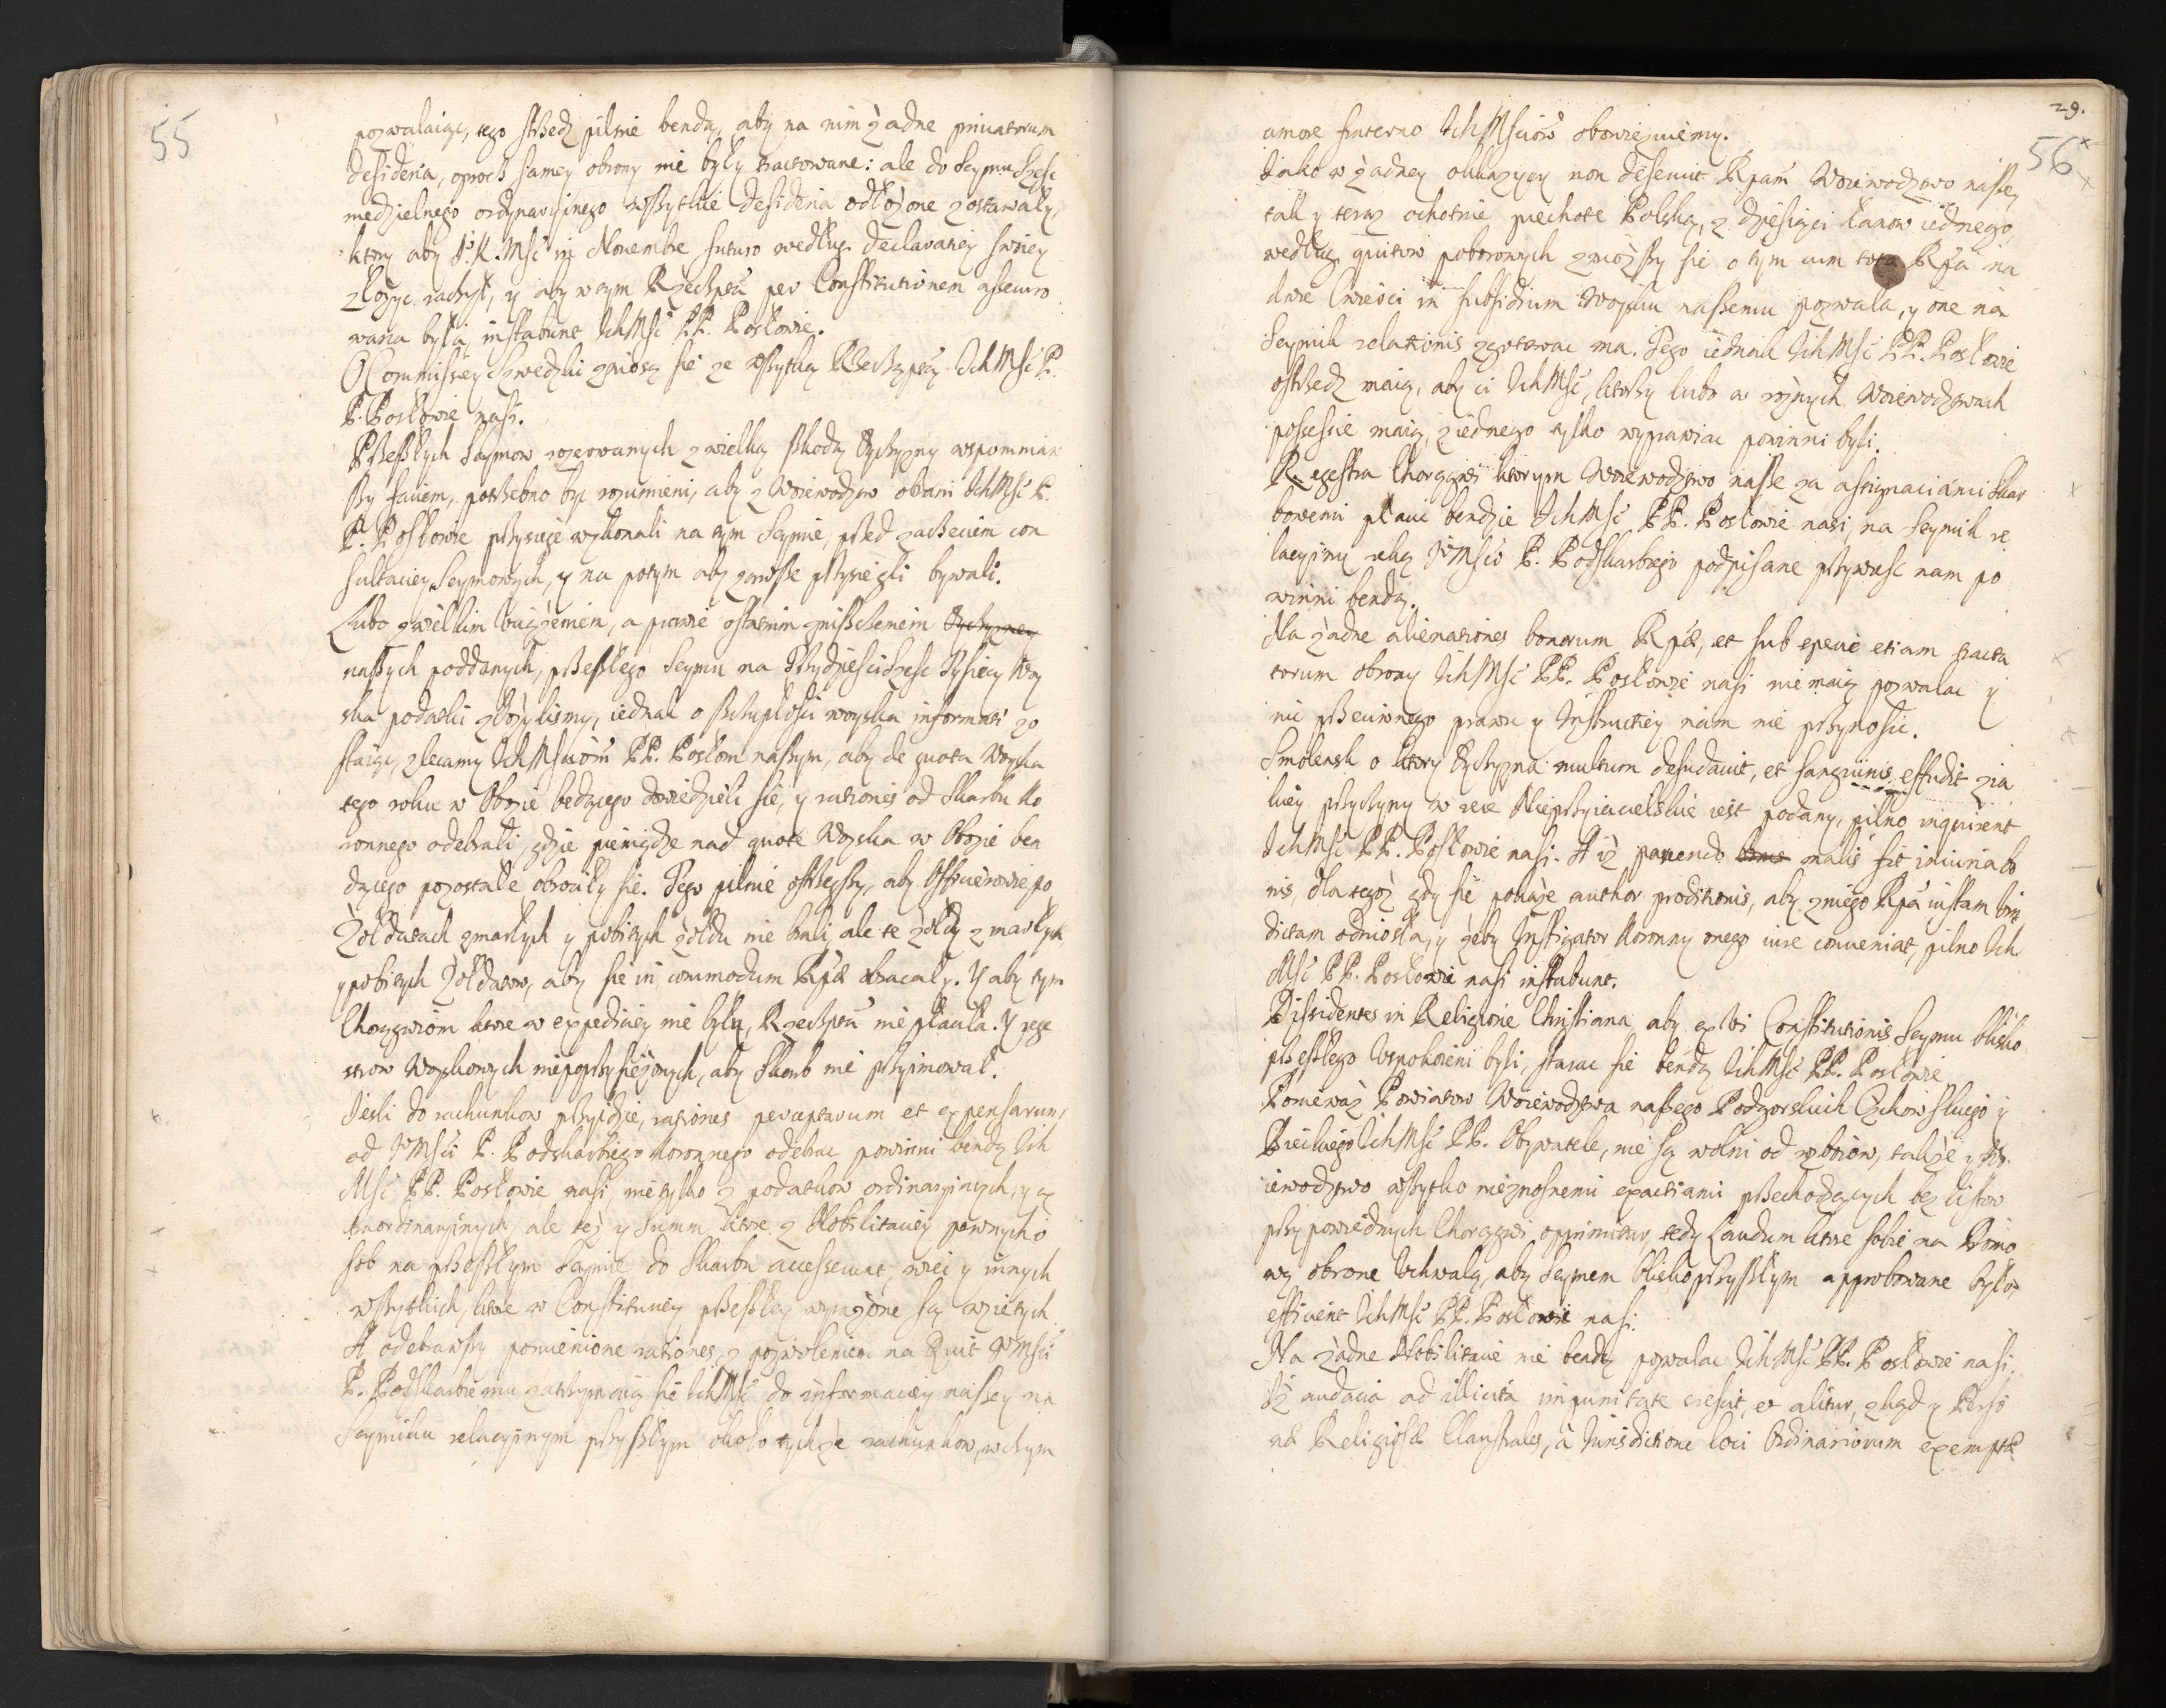 55
pozwalaiąc, tego strzedz pilnie bendą, aby na nim żadne priuatorum
desideria, oprocz samey obrony nie były tractowane: ale do Seymu szesc
niedzielnego ordynaryinego wszytkie desideria odłożone zostawały,
ktory aby J. K. Mśc in Nouembre futuro według declaratiey swoiey
złożyc raczył, y aby w tym Rzeczpta per Constitutionem assecuro
wana była, instabunt IchMśc PP. Posłowie.
O Commissiey Szwedzki zniosą sie ze wszytką Rzecząptą IchMśc P.
P. Posłowie nasi.
Przeszłych Saymow rozerwanych z wielką szkodą Oyczyzny wspomniaw
szy faciem, potrzebno byc rozumieni, aby z Woiewodztw obrani IchMśc P.
P. Posłowie przysiege wykonali na tym Seymie, przed zaczeciem con
sultaciey Seymowych, y na potym aby zawsze przysiegli bywali.
Lubo z wielkim vciążeniem, a prawie ostatnim zniszczeniem Oyczyzney
naszych poddanych, przeszłego Seymu na Trzydziesciszesc Tysiecy Woy
ska podatki złożylismy, iednak o szczupłosci woyska informati zo
staiąc, zlecamy IchMsciom PP. Posłom naszym, aby de quota Woyska
tego roku w Obozie bedącego dowiedzieli sie, y rationes od Skarbu Ko
ronnego odebrali, gdzie pieniądze nad quote Woyska w Obozie ben
dącego pozostałe obrociły sie. Tego pilnie ostrzegszy, aby Officierowie po
Żołdatach zmarłych y pobitych żołdu nie brali, ale te żołdy zmarłych
y pobitych Żołdatow, aby sie in commodum Rptæ obracały. Y aby tym
Chorągwiom ktore w expediciey nie były, Rzeczpta nie płaciła. Y rege
strow Woyskowych niepoprzysiężonych, aby Skarb nie przyimował.
Jesli do rachunkow przyidzie, rationes perceptarum et expensarum,
od JMści P. Podskarbiego Koronnego odebrac powinni bendą Ich
Mśc PP. Posłowie nasi nie tylko z podatkow ordinaryinych, y ex
traordinaryinych, ale też y Summ ktore z Nobilitaciey pewnych o
sob na przeszłym Seymie do Skarbu accesserunt, wiec y innych
wszytkich, ktore w Constituciey przeszłey wyrażone są wzietych.
A odebrawszy pomienione rationes, z pozwoleniem na Quit JMści
P. Podskarbiemu zatrzymaią sie IchMśc do informaciey naszey na
Seymiku relacyinym przyszłym około tychże rachunkow, w czym
29.
56
amore fraterno IchMsciow obowięzuiemy.
Jako w żadney okkazyey non deseruit Rpam Woiewodztwo nasze,
tak y teraz ochotnie piechote Polską, z dziesiąci łanow iednego,
według quitow poborowych znioższy sie o tym cum tota Rpta na
dwie cwierci in subsidium Woysku naszemu pozwala, y one na
Seymik relationis zgotowac ma. Tego iednak IchMśc PP. Posłowie
ostrzedz maią, aby ci IchMśc, ktorzy lubo w rożnych Woiewodztwach
possessie maią, z iednego tylko wyprawiac powinni byli.
Regestra Chorągwi ktorym Woiewodztwo nasze za assignaciami skar
bowemi płacic bendzie IchMśc PP. Posłowie nasi, na Seymik re
lacyiny ręką JMści P. Podskarbiego podpisane przywiesc nam po
winni bendą.
Na żadne alienationes bonorum Rptæ, et sub specie etiam tracta
torum obrony IchMśc PP. Posłowie nasi nie maią pozwalac y
nic przeciwnego prawu y Instructiey nam nie przynosic.
Smolensk o ktory Oyczyzna multum desudauit, et sanguinis effudit z ia
kiey przyczyny w rece Nieprzyiacielskie iest podany, pilno inquirent
IchMśc PP. Posłowie nasi. A iż parcendo malis fit iniuria bo
nis, dla tegoż gdy sie pokaże author proditionis, aby z niego Rpta iustam vin
dictam odniosła, y żeby Instigator Koronny onego iure conueniat, pilno Ich
Mśc PP. Posłowie nasi instabunt.
Dissidentes in Religione Christiana aby ex vi Constitutionis Seymu blisko
przeszłego Vspokoieni byli, starac sie bendą IchMśc PP. Posłowie
Poniewaz Powiatow Woiewodztwa naszego Podgorskich Czchowskiego y
Bieckiego IchMśc PP. Obywatele, nie są wolni od zboiow, także y Wo
iewodztwo wszytko nieznosnemi exactiami przechodzących bez listow
przypowiednych Chorągwi opprimitur, tedy Laudum ktore sobie na Domo
wą obrone Vchwalą, aby Seymem blisko przyszłym approbowane było,
efficient IchMśc PP. Posłowie nasi.
Na żadne Nobilitacie nie bendą pozwalac IchMśc PP. Posłowie nasi.
Iż audacia ad illicita impunitate crescit, et alitur, zkąd y Perso
næ Religiosæ Claustrales, à Iurisdictione loci Ordinariorum exemptæ